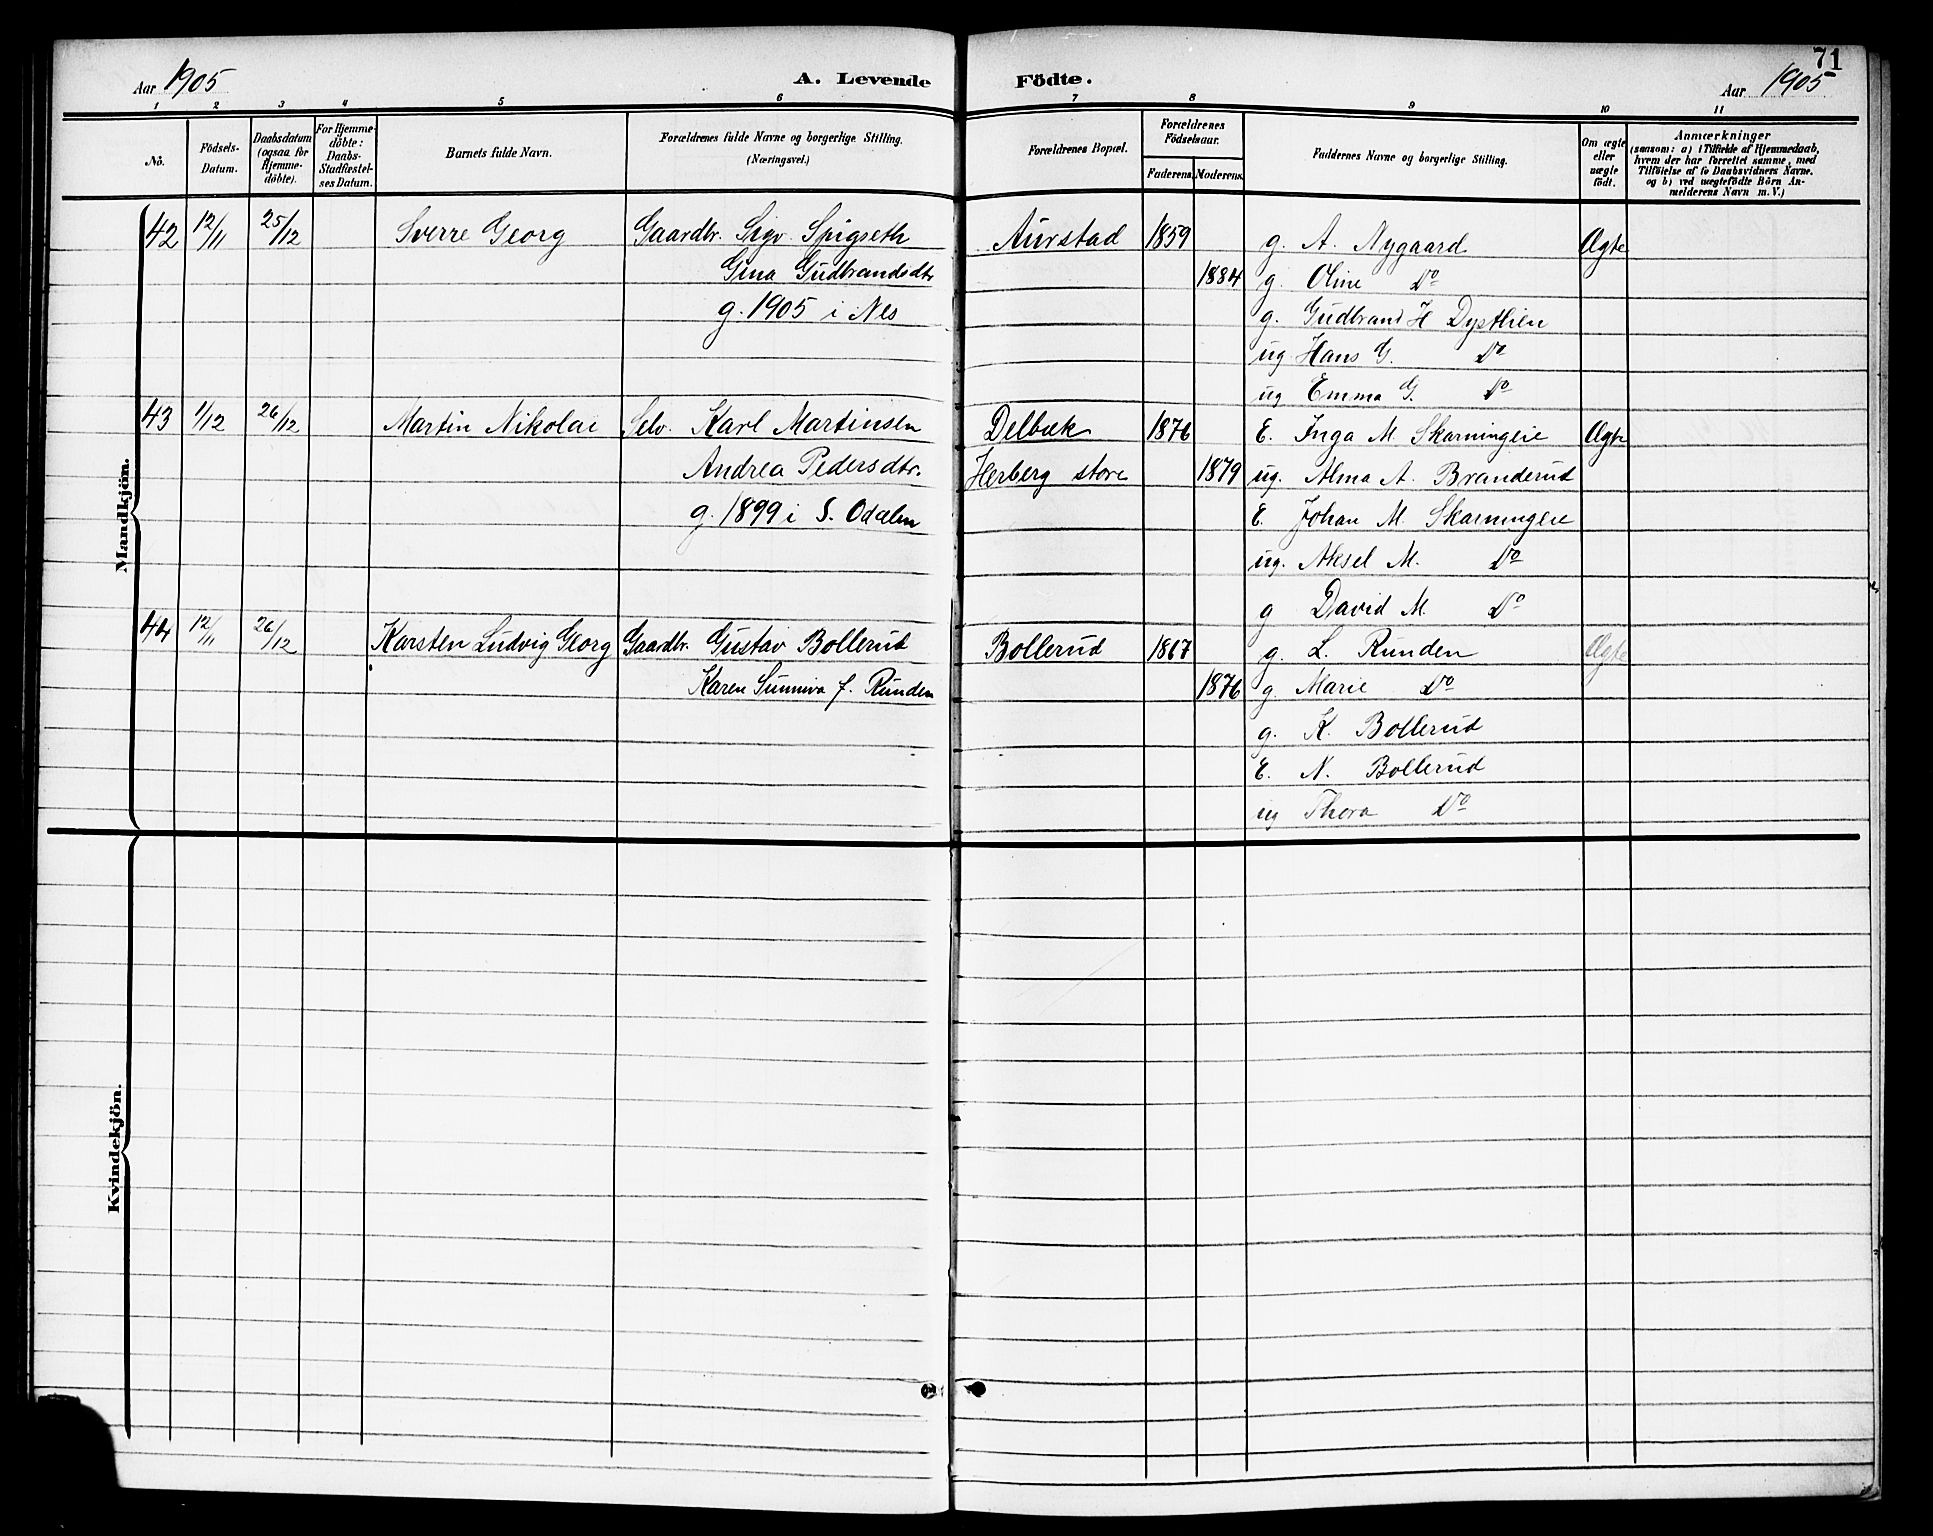 71
Aar 1905 A. Levende Födte. Aar 1905
1 2 3 4 5 6 7 8 9 10 11
Nö.
Födsels-
Datum.
Daabsdatum
(ogsaa for
Hjemme-
döbte).
For Hjemme-
döbte:
Daabs-
Stadfæstel-
ses Datum.
Barnets fulde Navn.
Forældrenes fulde Navne og borgerlige Stilling.
(Næringsvei.)
Forældrenes Bopæl.
Forældrenes
Födselsaar.
Faderens. Moderens.
Faddernes Navne og borgerlige Stilling.
Om ægte
eller
uægte
født.
Anmærkninger
(saasom: a) i Tilfælde af Hjemmedaab,
hvem der har forrettet samme, med
Tilföielse af to Daabsvidners Navne.
og b) ved uægtefödte Börn An-
melderens Navn m. V.)
Mandkjön.
42 12/11 25/12 Sverre Georg Gaardbr. Sigv. Spigseth Aurstad 1859 g. A. Nygaard Ægte
Gina Gudbrandsdtr 1884 g. Oline Do
g. 1905 i Nes g. Gudbrand H Dysthien
ug Hans G. Do
ug Emma G. Do
43 1/12 26/12 Martin Nikolai Selv. Karl Martinsen Delbæk 1876 E. Inga M. Skarningeie Ægte
Andrea Pedersdtr. Herberg store 1879 ug. Alma A. Branderud
g. 1899 i S. Odalen E. Johan M. Skarningeie
ug. Aksel M. Do
g David M. Do
44 12/11 26/12 Karsten Ludvig Georg Gaardbr. Gustav Bollerud Bollerud 1867 g. L. Runden Ægte
Karen Sunniva f. Runden 1876 g. Marie Do
g. K. Bollerud
E. N. Bollerud
ug Thora Do
Kvindekjön.